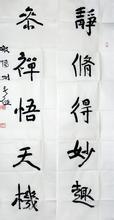 靜脩得妙趣
参禪悟天機